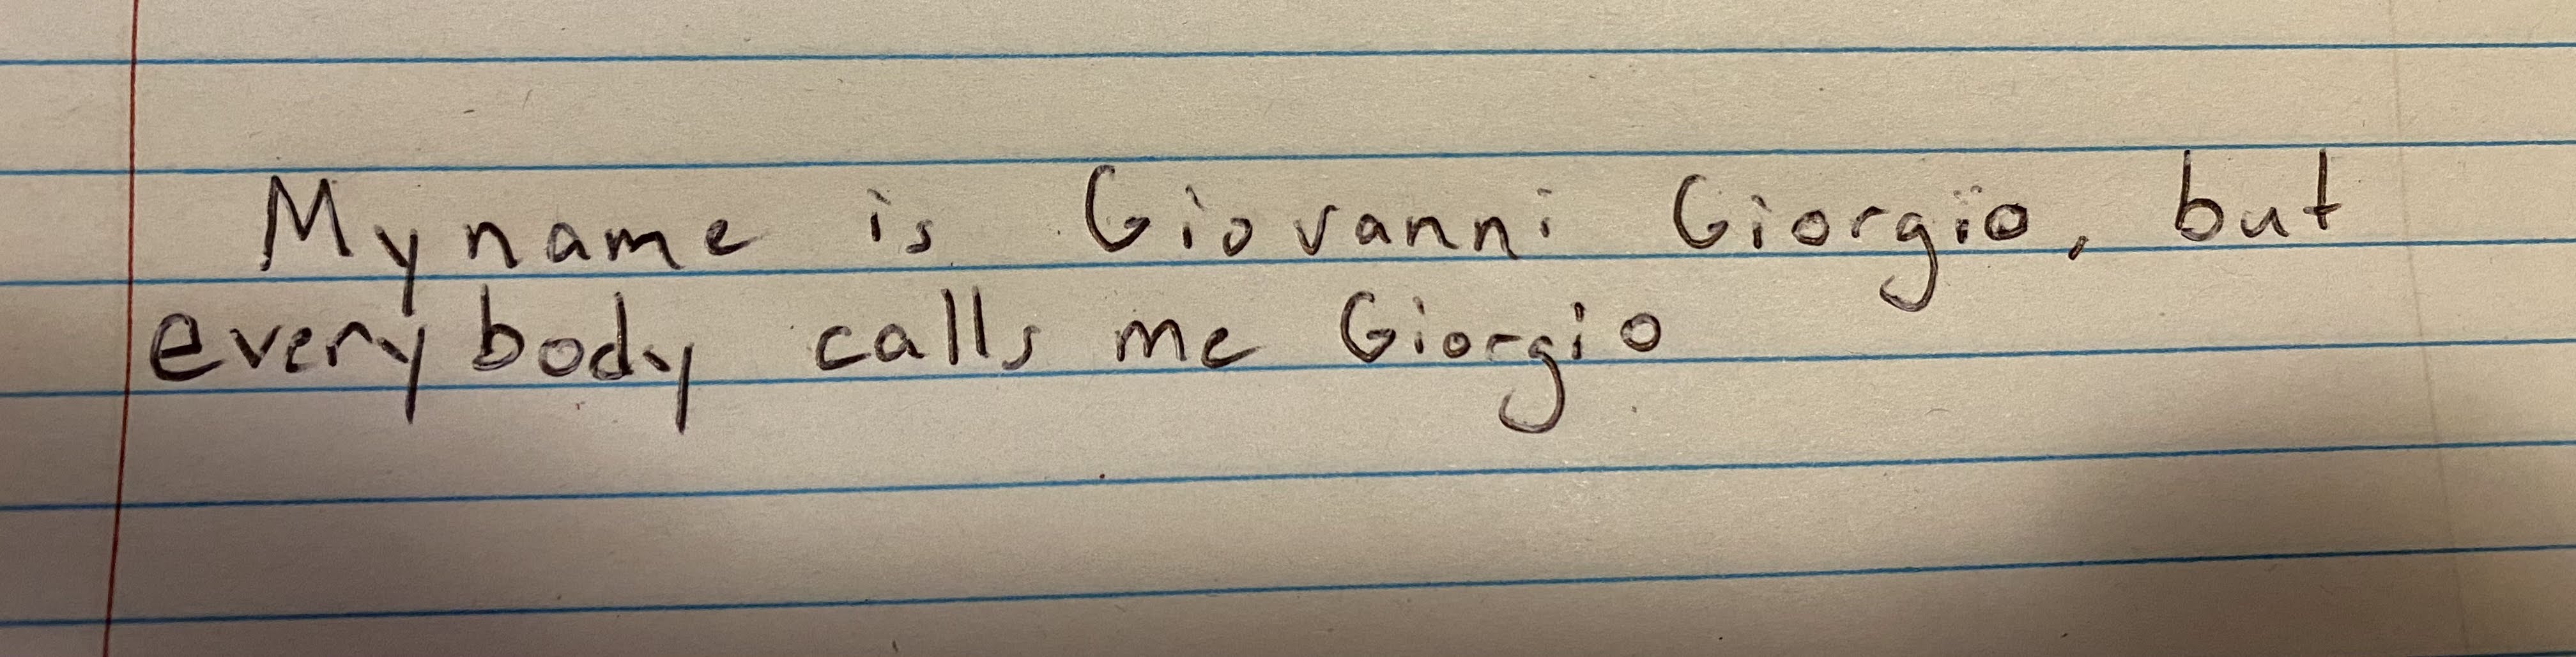 My name is Giovanni Giorgio, but
everybody calls me Giorgio